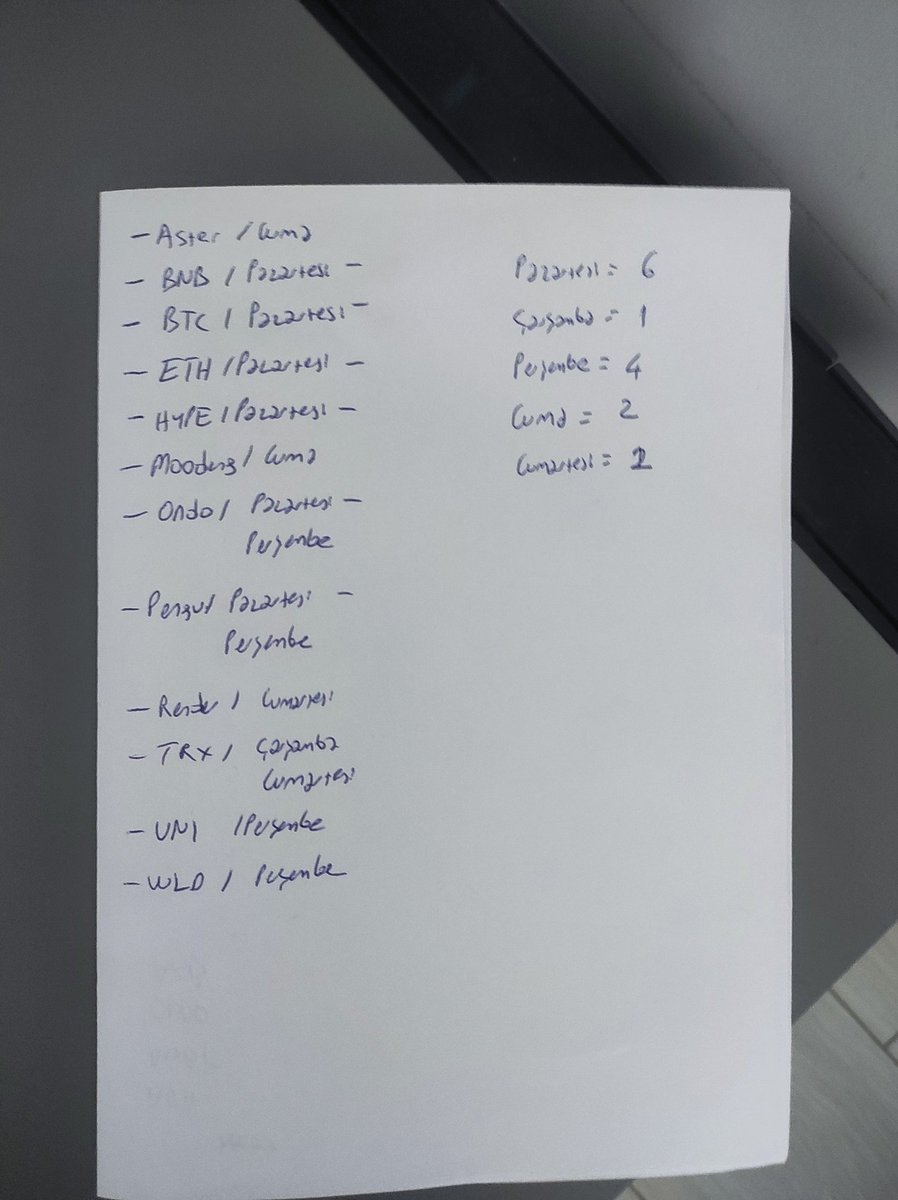 - Aster / Cuma
- BNB / Pazartesi -
- BTC / Pazartesi -
- ETH / Pazartesi -
- HYPE / Pazartesi -
- Moodeng / Cuma
- Ondo / Pazartesi -
Perşenbe
- Pengu / Pazartesi -
Perşenbe
- Render / Cumartesi
- TRX / Çarşanba
Cumartesi
- UNI / Perşenbe
- WLD / Perşenbe
Pazartesi = 6
Çarşanba = 1
Perşenbe = 4
Cuma = 2
Cumartesi = 2